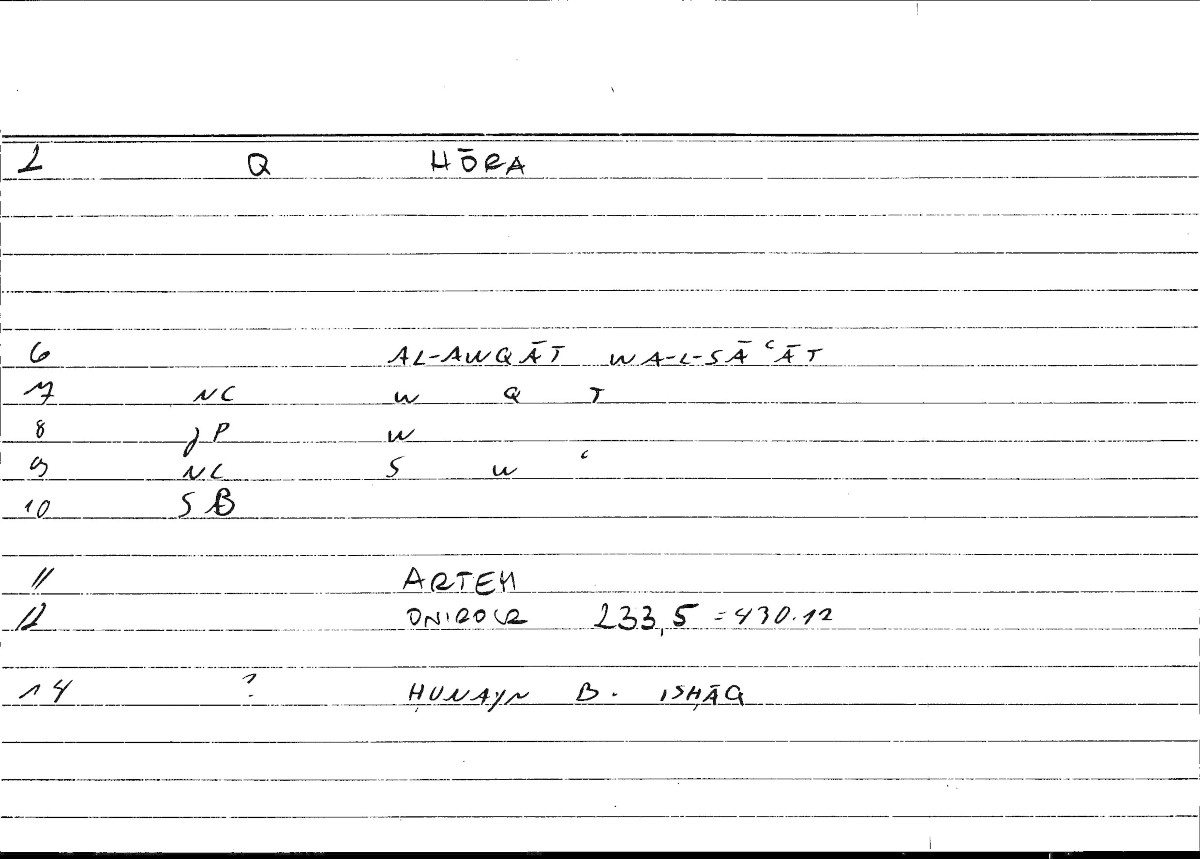 2 Q HŌRA
6 AL-AWQĀT WA-L-SĀʿĀT
7 NC W Q T
8 JP W
9 NC S W ʿ
10 SB
11 ARTEM
12 ONIROCR 233,5 = 430.12
14 ? ḤUNAYN B. ISḤĀQ